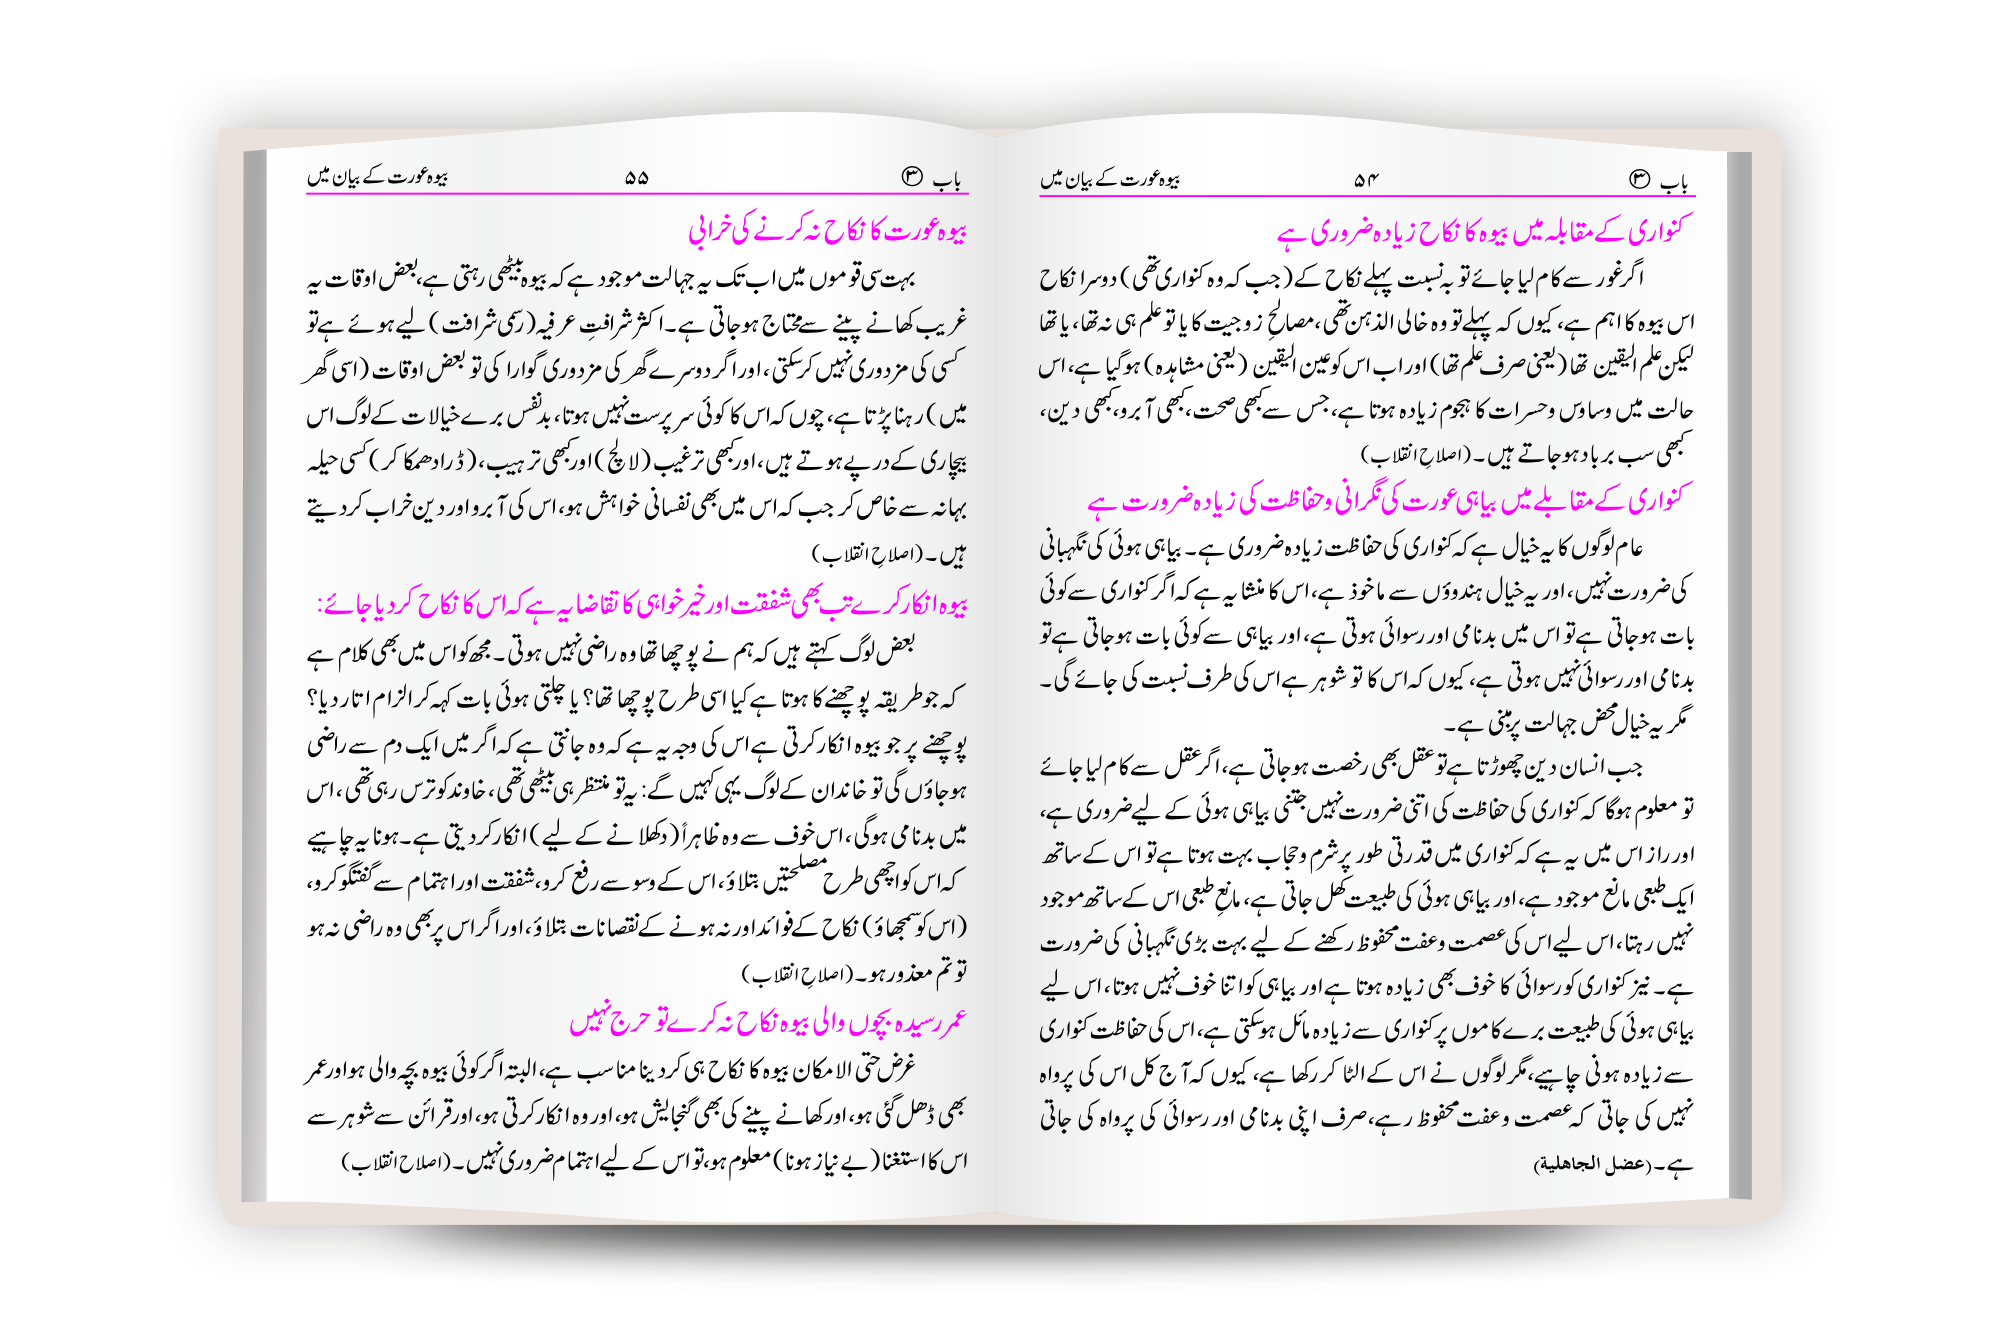 باب ③ ۵۴ بیوہ عورت کے بیان میں
کنواری کے مقابلہ میں بیوہ کا نکاح زیادہ ضروری ہے
اگر غور سے کام لیا جائے تو بہ نسبت پہلے نکاح کے (جب کہ وہ کنواری تھی) دوسرا نکاح
اس بیوہ کا اہم ہے، کیوں کہ پہلے تو وہ خالی الذہن تھی، مصالحِ زوجیت کا یا تو علم ہی نہ تھا، یا تھا
لیکن علم الیقین تھا (یعنی صرف علم تھا) اور اب اس کو عین الیقین (یعنی مشاہدہ) ہوگیا ہے، اس
حالت میں وساوس وحسرات کا ہجوم زیادہ ہوتا ہے، جس سے کبھی صحت، کبھی آبرو، کبھی دین،
کبھی سب برباد ہوجاتے ہیں۔ (اصلاحِ انقلاب)
کنواری کے مقابلے میں بیاہی عورت کی نگرانی وحفاظت کی زیادہ ضرورت ہے
عام لوگوں کا یہ خیال ہے کہ کنواری کی حفاظت زیادہ ضروری ہے۔ بیاہی ہوئی کی نگہبانی
کی ضرورت نہیں، اور یہ خیال ہندوؤں سے ماخوذ ہے، اس کا منشا یہ ہے کہ اگر کنواری سے کوئی
بات ہوجاتی ہے تو اس میں بدنامی اور رسوائی ہوتی ہے، اور بیاہی سے کوئی بات ہوجاتی ہے تو
بدنامی اور رسوائی نہیں ہوتی ہے، کیوں کہ اس کا تو شوہر ہے اس کی طرف نسبت کی جائے گی۔
مگر یہ خیال محض جہالت پر مبنی ہے۔
جب انسان دین چھوڑتا ہے تو عقل بھی رخصت ہوجاتی ہے، اگر عقل سے کام لیا جائے
تو معلوم ہوگا کہ کنواری کی حفاظت کی اتنی ضرورت نہیں جتنی بیاہی ہوئی کے لیے ضروری ہے،
اور راز اس میں یہ ہے کہ کنواری میں قدرتی طور پر شرم وحجاب بہت ہوتا ہے تو اس کے ساتھ
ایک طبعی مانع موجود ہے، اور بیاہی ہوئی کی طبیعت کھل جاتی ہے، مانعِ طبعی اس کے ساتھ موجود
نہیں رہتا، اس لیے اس کی عصمت وعفت محفوظ رکھنے کے لیے بہت بڑی نگہبانی کی ضرورت
ہے۔ نیز کنواری کو رسوائی کا خوف بھی زیادہ ہوتا ہے اور بیاہی کو اتنا خوف نہیں ہوتا، اس لیے
بیاہی ہوئی کی طبیعت برے کاموں پر کنواری سے زیادہ مائل ہوسکتی ہے، اس کی حفاظت کنواری
سے زیادہ ہونی چاہیے، مگر لوگوں نے اس کے الٹا کر رکھا ہے، کیوں کہ آج کل اس کی پرواہ
نہیں کی جاتی کہ عصمت وعفت محفوظ رہے، صرف اپنی بدنامی اور رسوائی کی پرواہ کی جاتی
ہے۔ (عضل الجاهلية)
باب ③ ۵۵ بیوہ عورت کے بیان میں
بیوہ عورت کا نکاح نہ کرنے کی خرابی
بہت سی قوموں میں اب تک یہ جہالت موجود ہے کہ بیوہ بیٹھی رہتی ہے، بعض اوقات یہ
غریب کھانے پینے سے محتاج ہوجاتی ہے۔ اکثر شرافتِ عرفیہ (رسمی شرافت) لیے ہوئے ہے تو
کسی کی مزدوری نہیں کرسکتی، اور اگر دوسرے گھر کی مزدوری گوارا کی تو بعض اوقات (اسی گھر
میں) رہنا پڑتا ہے، چوں کہ اس کا کوئی سرپرست نہیں ہوتا، بدنفس برے خیالات کے لوگ اس
بیچاری کے درپے ہوتے ہیں، اور کبھی ترغیب (لالچ) اور کبھی ترہیب، (ڈرا دھمکا کر) کسی حیلہ
بہانہ سے خاص کر جب کہ اس میں بھی نفسانی خواہش ہو، اس کی آبرو اور دین خراب کردیتے
ہیں۔ (اصلاحِ انقلاب)
بیوہ انکار کرے تب بھی شفقت اور خیر خواہی کا تقاضا یہ ہے کہ اس کا نکاح کردیا جائے:
بعض لوگ کہتے ہیں کہ ہم نے پوچھا تھا وہ راضی نہیں ہوتی۔ مجھ کو اس میں بھی کلام ہے
کہ جو طریقہ پوچھنے کا ہوتا ہے کیا اسی طرح پوچھا تھا؟ یا چلتی ہوئی بات کہہ کر الزام اتار دیا؟
پوچھنے پر جو بیوہ انکار کرتی ہے اس کی وجہ یہ ہے کہ وہ جانتی ہے کہ اگر میں ایک دم سے راضی
ہوجاؤں گی تو خاندان کے لوگ یہی کہیں گے: یہ تو منتظر ہی بیٹھی تھی، خاوند کو ترس رہی تھی، اس
میں بدنامی ہوگی، اس خوف سے وہ ظاہراً (دکھلانے کے لیے) انکار کردیتی ہے۔ ہونا یہ چاہیے
کہ اس کو اچھی طرح مصلحتیں بتلاؤ، اس کے وسوسے رفع کرو، شفقت اور اہتمام سے گفتگو کرو،
(اس کو سمجھاؤ) نکاح کے فوائد اور نہ ہونے کے نقصانات بتلاؤ، اور اگر اس پر بھی وہ راضی نہ ہو
تو تم معذور ہو۔ (اصلاحِ انقلاب)
عمر رسیدہ بچوں والی بیوہ نکاح نہ کرے تو حرج نہیں
غرض حتی الامکان بیوہ کا نکاح ہی کردینا مناسب ہے، البتہ اگر کوئی بیوہ بچہ والی ہو اور عمر
بھی ڈھل گئی ہو، اور کھانے پینے کی بھی گنجایش ہو، اور وہ انکار کرتی ہو، اور قرائن سے شوہر سے
اس کا استغنا (بے نیاز ہونا) معلوم ہو، تو اس کے لیے اہتمام ضروری نہیں۔ (اصلاح انقلاب)